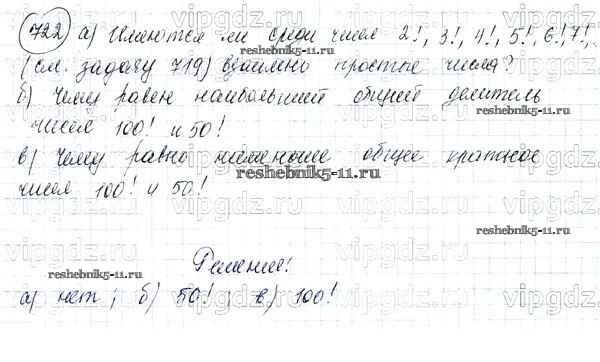 722 а) Имеются ли среди чисел 2!, 3!, 4!, 5!, 6!, 7!,
(см. задачу 719) взаимно простые числа?
б) Чему равен наибольший общий делитель
чисел 100! и 50!
в) Чему равно наименьшее общее кратное
чисел 100! и 50!
Решение!
а) нет; б) 50!; в) 100!
vipgdz.com
reshebnik5-11.ru
reshebnik5-11.ru
reshebnik5-11.ru
reshebnik5-11.ru
reshebnik5-11.ru